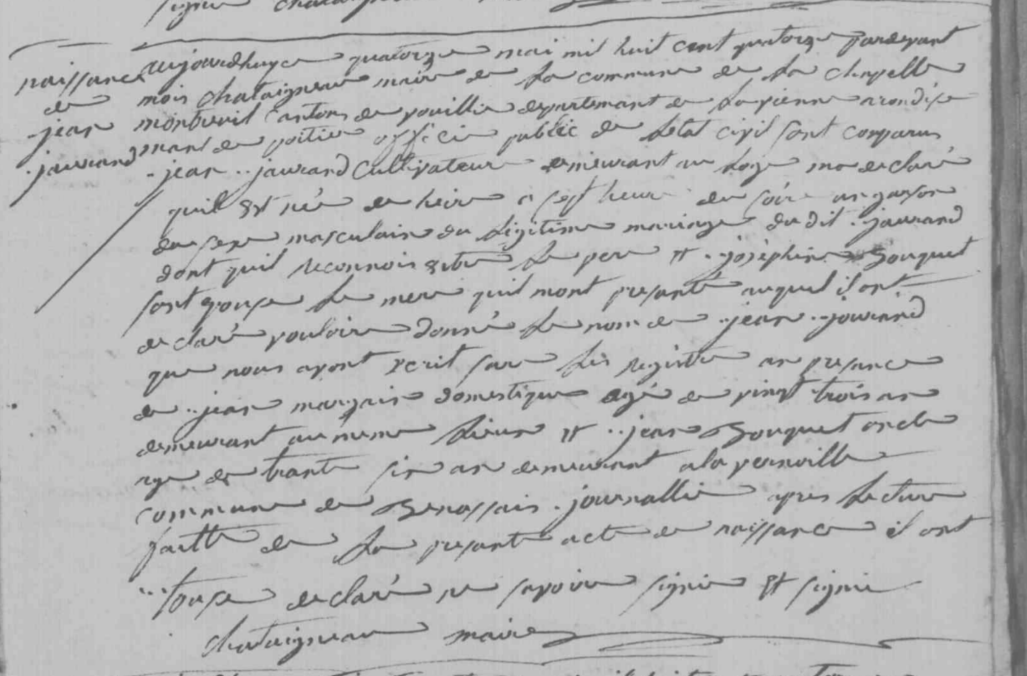 signé chataigneau
naissance
de
jean
jaurand
aujourdhuy ce quatorze mai mil huit cent quatorze pardevant
mois chataigneau maire de la commune de la chapelle
montreuil canton de vouillie departemant de la vienne arondise
mant de poitier officié public de letat civil sont comparus
jean jaurand Cultivateur demeurant au ma declaré
quil est née de heire a sept heure du soire un garson
du sexe masculain du légitime mariage du dit jaurand
dont quil reconnois etre le pere et joséphine Bouquet
sont epouse la mere quil mont presanté auquel il ont
declaré vouloire donné le nom de jean jourand
que nous avont ecrit sur les registre an presance
de jean marzais domestique agé de vingt trois an
demeurant au meme lieux et jean Bouquet oncle
age de trante six an demeurant a la vernville
commune de Benassais journallie apres lecture
faitte de la presante acte de naissance il ont
touse declaré ne savoire signié et signié
chataigneau maire